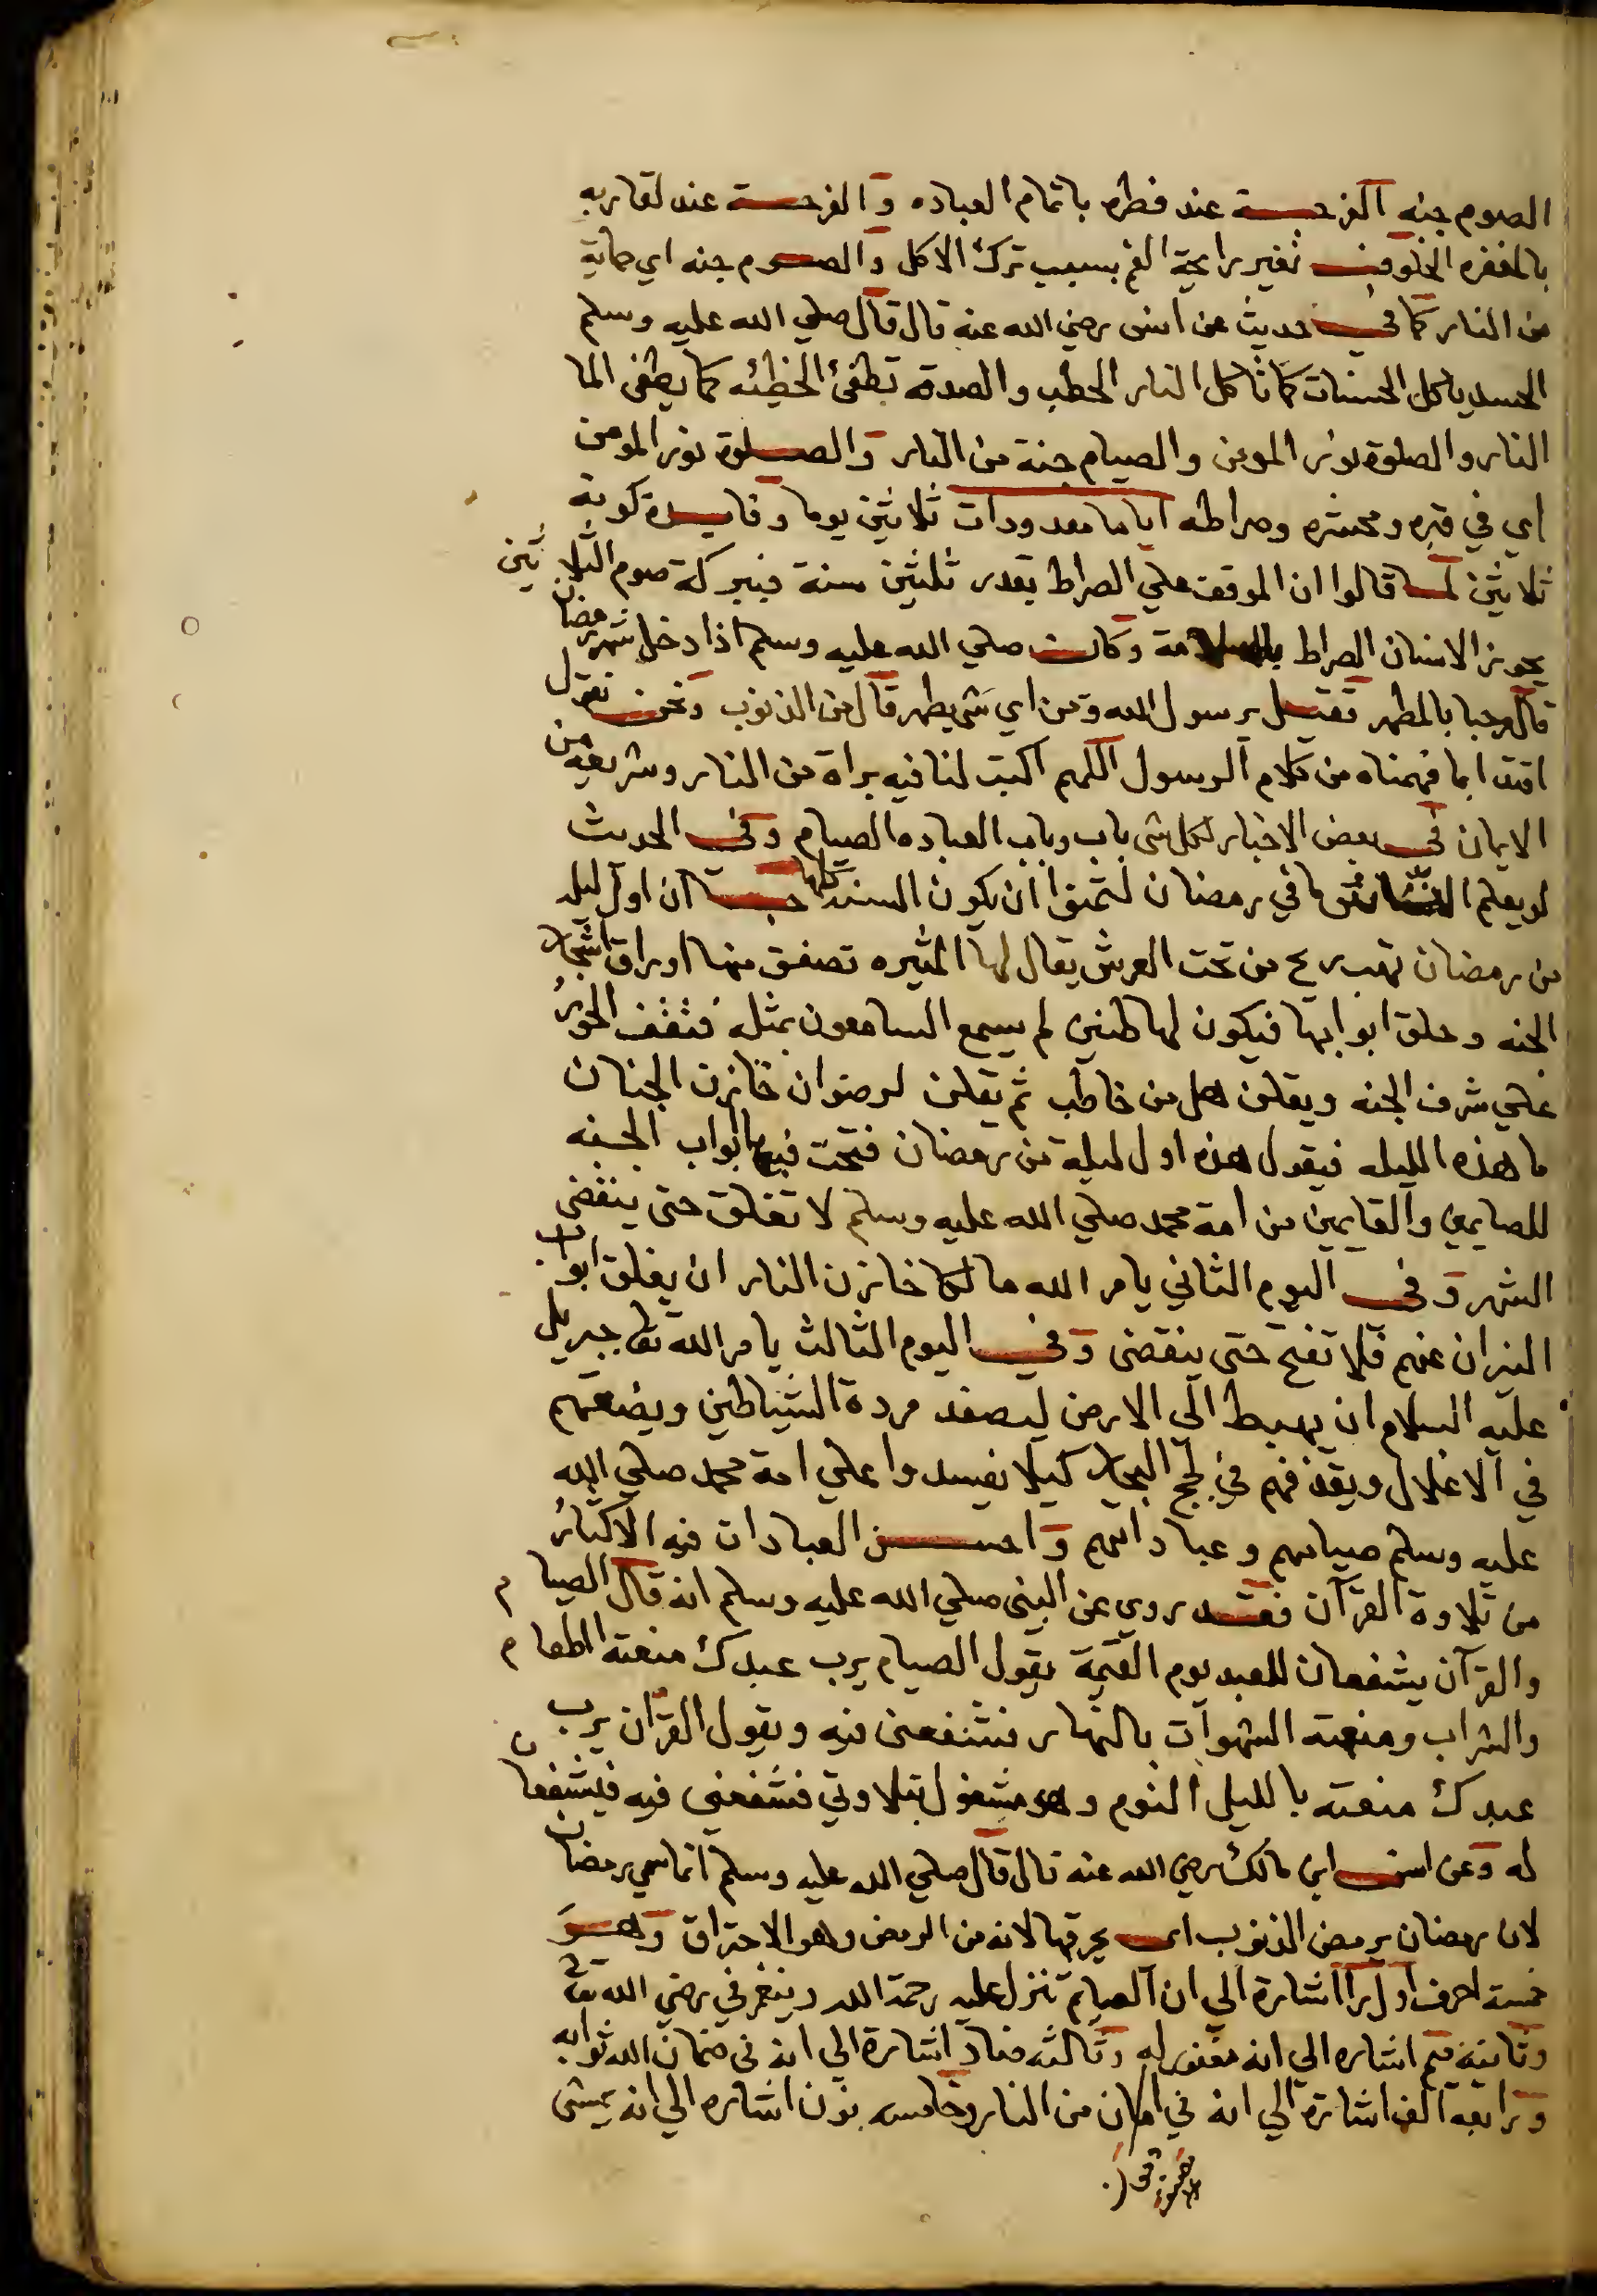 الصوم جنه الفرحة عند فطره باتمام العباده والفرحة عند لقاربه
بالمغفره الخلوف تغير رايحة الفم بسبب ترك الاكل والصوم جنه اي حماية
من النار كما في حديث عن انس رضي الله عنه قال قال صلي الله عليه وسلم
الحسد ياكل الحسنات كما تاكل النار الحطب والصدقة تطفئ الخطئه كما يطفى الما
النار والصلوة نور المومن والصيام جنة من النار والصلوة نور المومن
اي في قبره ومحشره وصراطه اياما معدودات ثلاثين يوما وفايدة كونه
ثلاثين لما قالوا ان الموقف علي الصراط بقدر ثلثين سنة فببركة صوم الثلاثين
يجوز الانسان الصراط بالسلامة وكان صلي الله عليه وسلم اذا دخل شهر رمضان
قال مرحبا بالمطهر فقيل يرسول الله ومن اي شي يطهر قال من الذنوب ونحن نقول
اقتدا بما فهمناه من كلام الرسول اللهم اكتب لنا فيه براة من النار وشربعه من
الايمان في بعض الاخبار لكل شي باب وباب العباده الصيام وفي الحديث
لو يعلم الناس ما في رمضان لتمنوا ان يكون السنه كلها حبيبنا ان اول ليله
من رمضان تهب ريح من تحت العرش يقال لها المثيره تصفق منها اوراق اشجار
الجنه وحلق ابوابها فيكون لها طنين لم يسمع السامعون بمثله فتقف الحور
علي شرف الجنه ويقلن هل من خاطب ثم يقلن لرضوان خازن الجنان
ما هذه الليله فيقول هذه اول ليلة من رمضان فتحت فيها ابواب الجنه
للصايمين والقايمين من امة محمد صلي الله عليه وسلم لا تغلق حتى ينقضى
الشهر وفي اليوم الثاني يامر الله مالكا خازن النار ان يغلق ابواب
النيران عنهم فلا تفتح حتى ينقضى وفي اليوم الثالث يامر الله تعا جبريل
عليه السلام ان يهبط الي الارض ليصفد مردة الشياطين ويضعهم
في الاغلال ويقذفهم في لجج البحار كيلا يفسدوا علي امة محمد صلي الله
عليه وسلم صيامهم وعباداتهم واحسن العبادات فيه الاكثار
من تلاوة القرآن فقد روي عن النبي صلي الله عليه وسلم انه قال الصيام
والقرآن يشفعان للعبد يوم القيمة يقول الصيام يرب عبدك منعته الطعام
والشراب ومنعته الشهوات بالنهار فشفعنى فيه ويقول القرآن يرب
عبدك منعته بالليل النوم وهو مشغول بتلاوتي فشفعني فيه فيشفعان
له وعن انس ابن مالك رضي الله عنه قال قال صلي الله عليه وسلم انما سمي رمضان
لان رمضان يرمض الذنوب اي يحرقها لانه من الرمض وهو الاحتراق وهو
خمسة احرف اول را اشارة الي ان الصيام تنزل عليه رحمة الله رضي الله
وثانيه ميم اشاره الي انه مغفور له وثالثه ضاد اشارة الي انه في ضمان الله ثوابه
ورابعه الف اشارة الي انه في امان من النار وخامسه نون اشاره الي انه يمشى